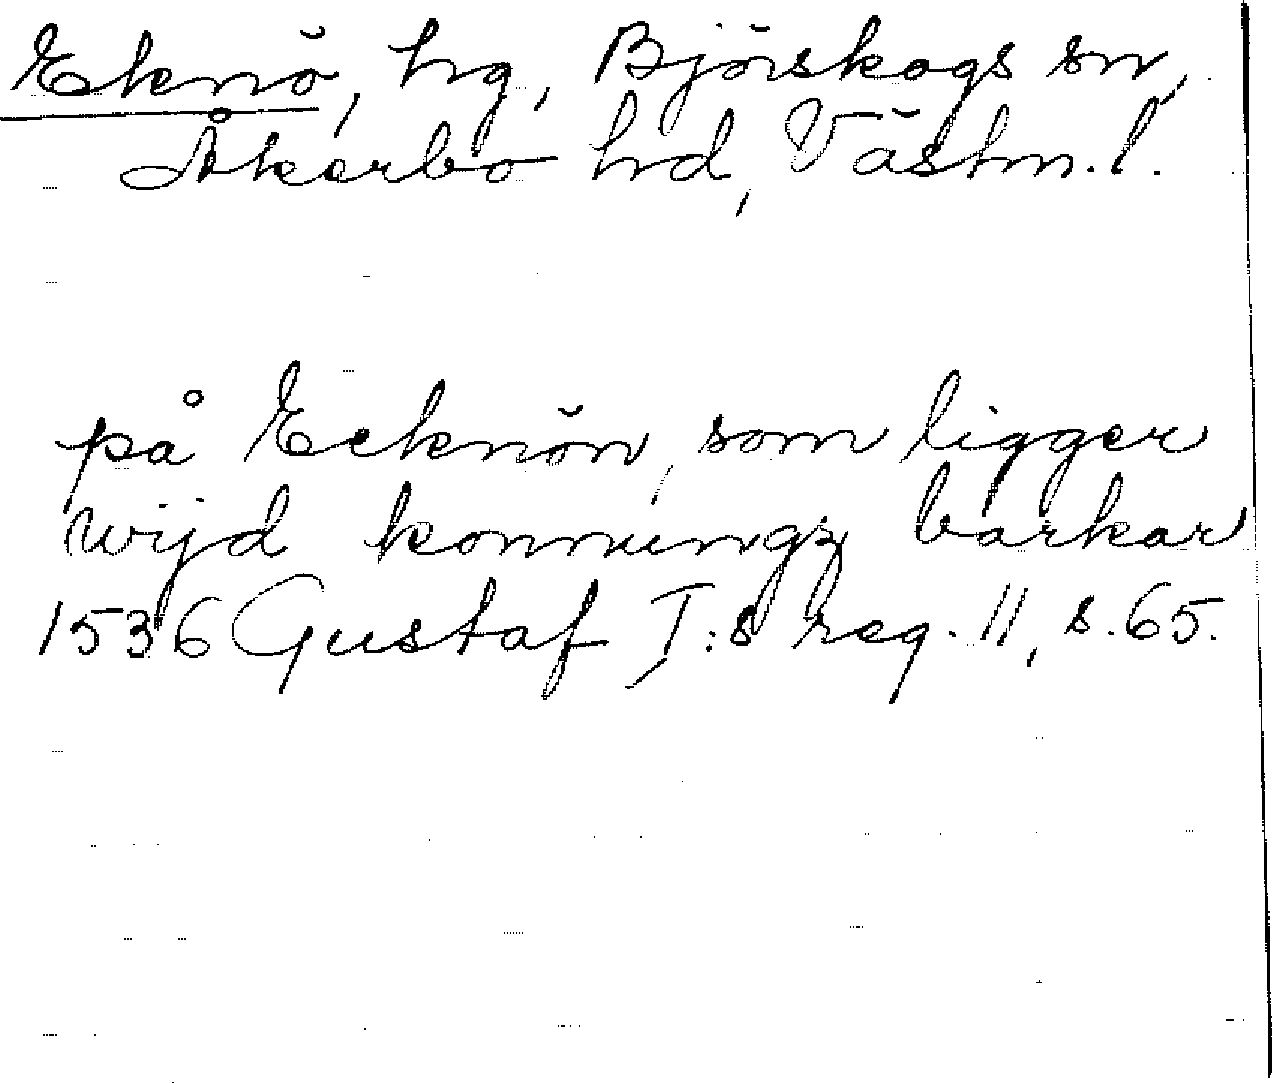 Eknö, hg, Björskogs sn,
Åkerbo hd, Västm.l.
på Ecknön, som ligger
wijd konnungz barkar
1536 Gustaf I:s reg. 11, s.65.